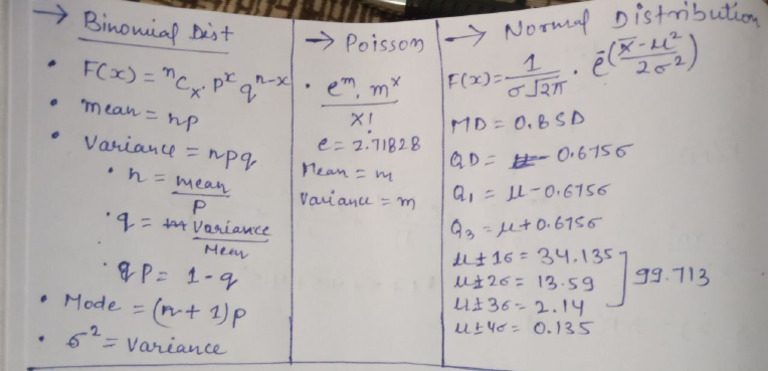 → Binomial Dist
• F(x) = ⁿCₓ. pˣ qⁿ⁻ˣ
• mean = np
• Variance = npq
• n = mean / p
• q = Variance / Mean
• qp = 1 - q
• Mode = (n + 1)p
• σ² = Variance
→ Poisson
• eᵐ. mˣ / x!
e = 2.71828
Mean = m
Variance = m
→ Normal Distribution
F(x) = 1 / σ√2π . e⁻(x̄ - μ² / 2σ²)
MD = 0.8 SD
QD = 0.675σ
Q₁ = μ - 0.675σ
Q₃ = μ + 0.675σ
μ ± 1σ = 34.135
μ ± 2σ = 13.59 ] 99.713
μ ± 3σ = 2.14
μ ± 4σ = 0.135